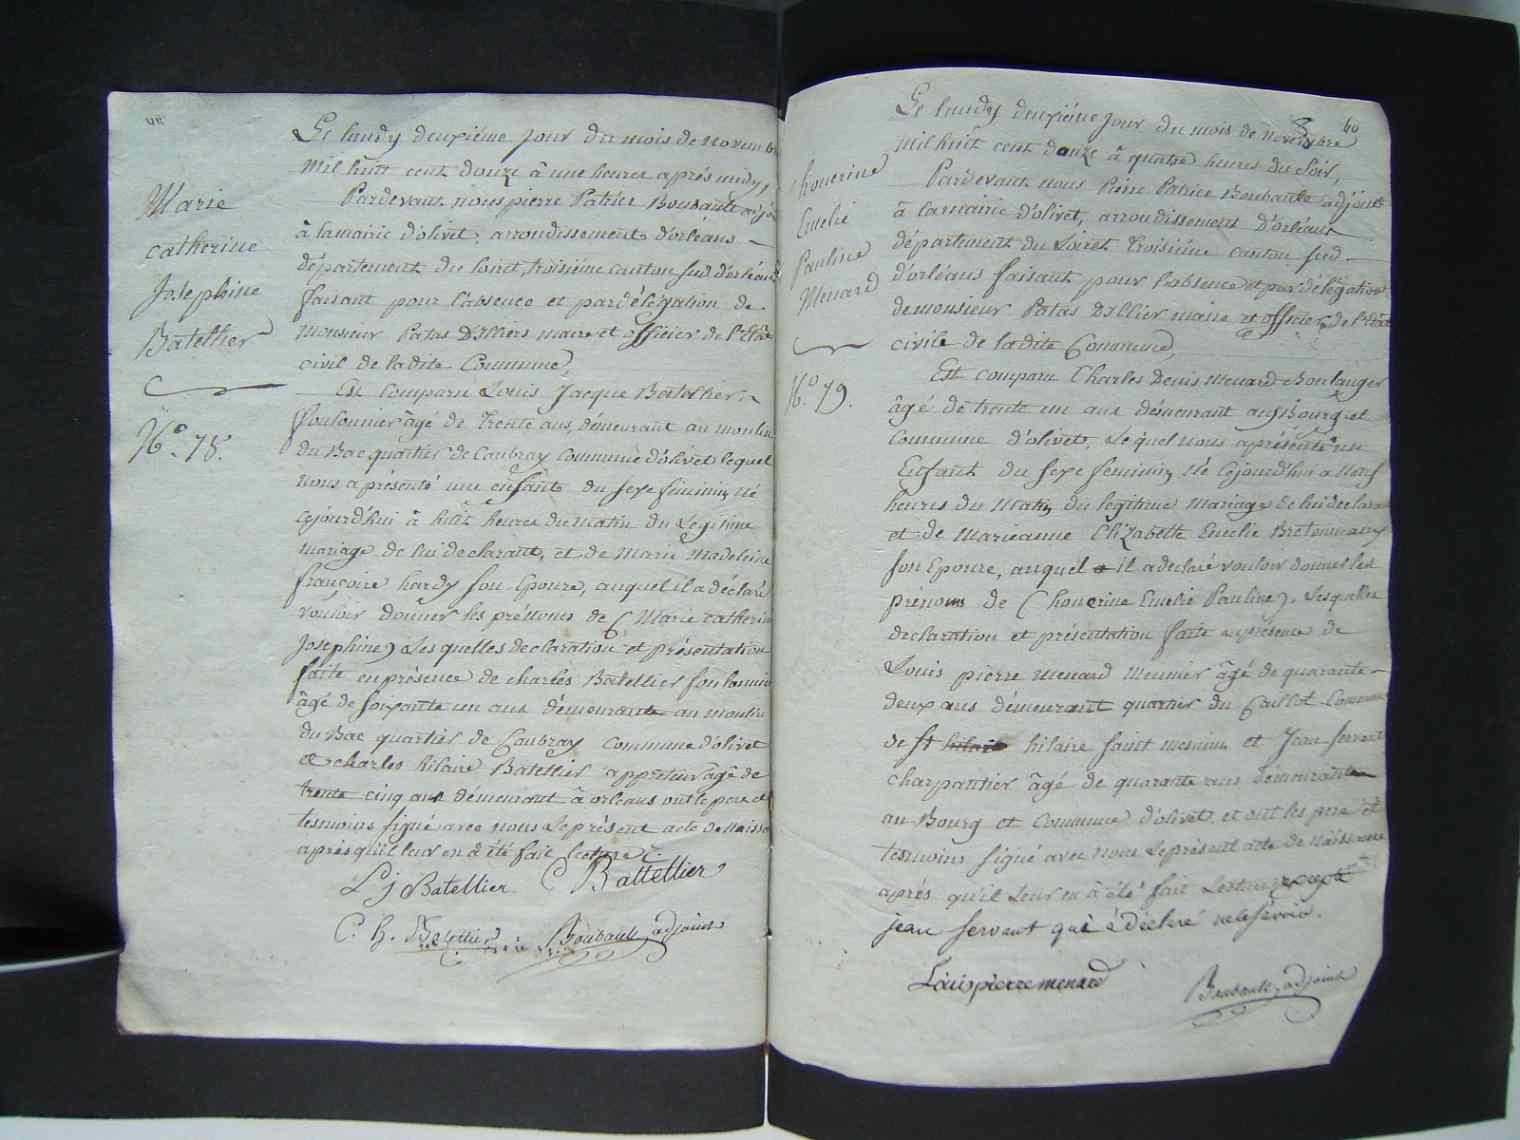 Marie
catherine
Josephine
Batellier
N.° 78.
Le lundy deuxiéme jour du mois de novembre
mil huit cent douze à une heures aprés midy,
Pardevant nous pierre Patrice Boubault adjoint
à la mairie d'olivet, arrondissement d'orléans
département du loiret, troisiéme canton sud d'orléans
faisant pour l'absence et par délégation de
Monsieur Patas D'Illiers maire et officier de l'état
civil de la dite Commune,
Est Comparu Louis Jacque Batellier
foulonnier âgé de trente ans, démeurant au moulin
du Bac quartier de Caubray Commune d'olivet lequel
nous a présenté une enfant du sexe féminin, né
cejourd'hui à huit heures du matin du Légitime
mariage de lui declarant, et de Marie Madeleine
françoise hardy son Epouze, auquel il a déclaré
vouloir donner les prénoms de (Marie catherine
Josephine) Lesquelles declaration et présentation
faite en présence de charles Batellier foulonnier
âgé de soixante un ans démeurante au moulin
du Bac quartier de Caubray Commune d'olivet
et charles hilaire Batellier appreteur âgé de
trente cinq ans démeurant à orleans ont le pere et
tesmoins signé avec nous Le présent acte de Naissance
aprés qu'il leur en à été fait lecture
L j Batellier C Battellier
C. h. Batellier Boubault adjoint
60
honerine
Emelie
Pauline
Menard
N.° 79.
Le lundy deuxiéme jour du mois de novembre
mil huit cent douze à quatre heures du soir,
Pardevant nous Pierre Patrice Boubault adjoint
à la mairie d'olivet, arrondissement d'orléans
département du Loiret troisiéme canton sud
d'orléans faisant pour l'absence et par délégation
de monsieur Patas D'Illier maire et officier de l'état
civile de ladite Commune,
Est comparu Charles Denis Menard Boulanger
âgé de trente un ans démeurant au Bourg et
Commune d'olivet, Lequel nous a présenté un
Enfant du sexe feminin, Né cejourd'hui a Neuf
heures du matin, du légitime mariage de lui declarant
et de Marieanne Elizabette Emelie Bretonneaux
son Epouze, auquel il a declaré vouloir donner les
prénoms de (honerine Emelie Pauline). Lesquelles
declaration et présentation faite en présence de
Louis pierre Menard Meunier âgé de quarante
deux ans démeurant quartier du Caillot Commune
de st hilaire saint mesmin, et Jean Servant
charpantier âgé de quarante ans démeurante
au Bourg et Commune d'olivet, et ont les pere et
tesmoins signé avec nous Le présent acte de Naissance
aprés qu'il Leur en à été fait Lecture excepté
jean servant qui à déclaré ne le sçavoir.
Louis pierre menard Boubault, adjoint